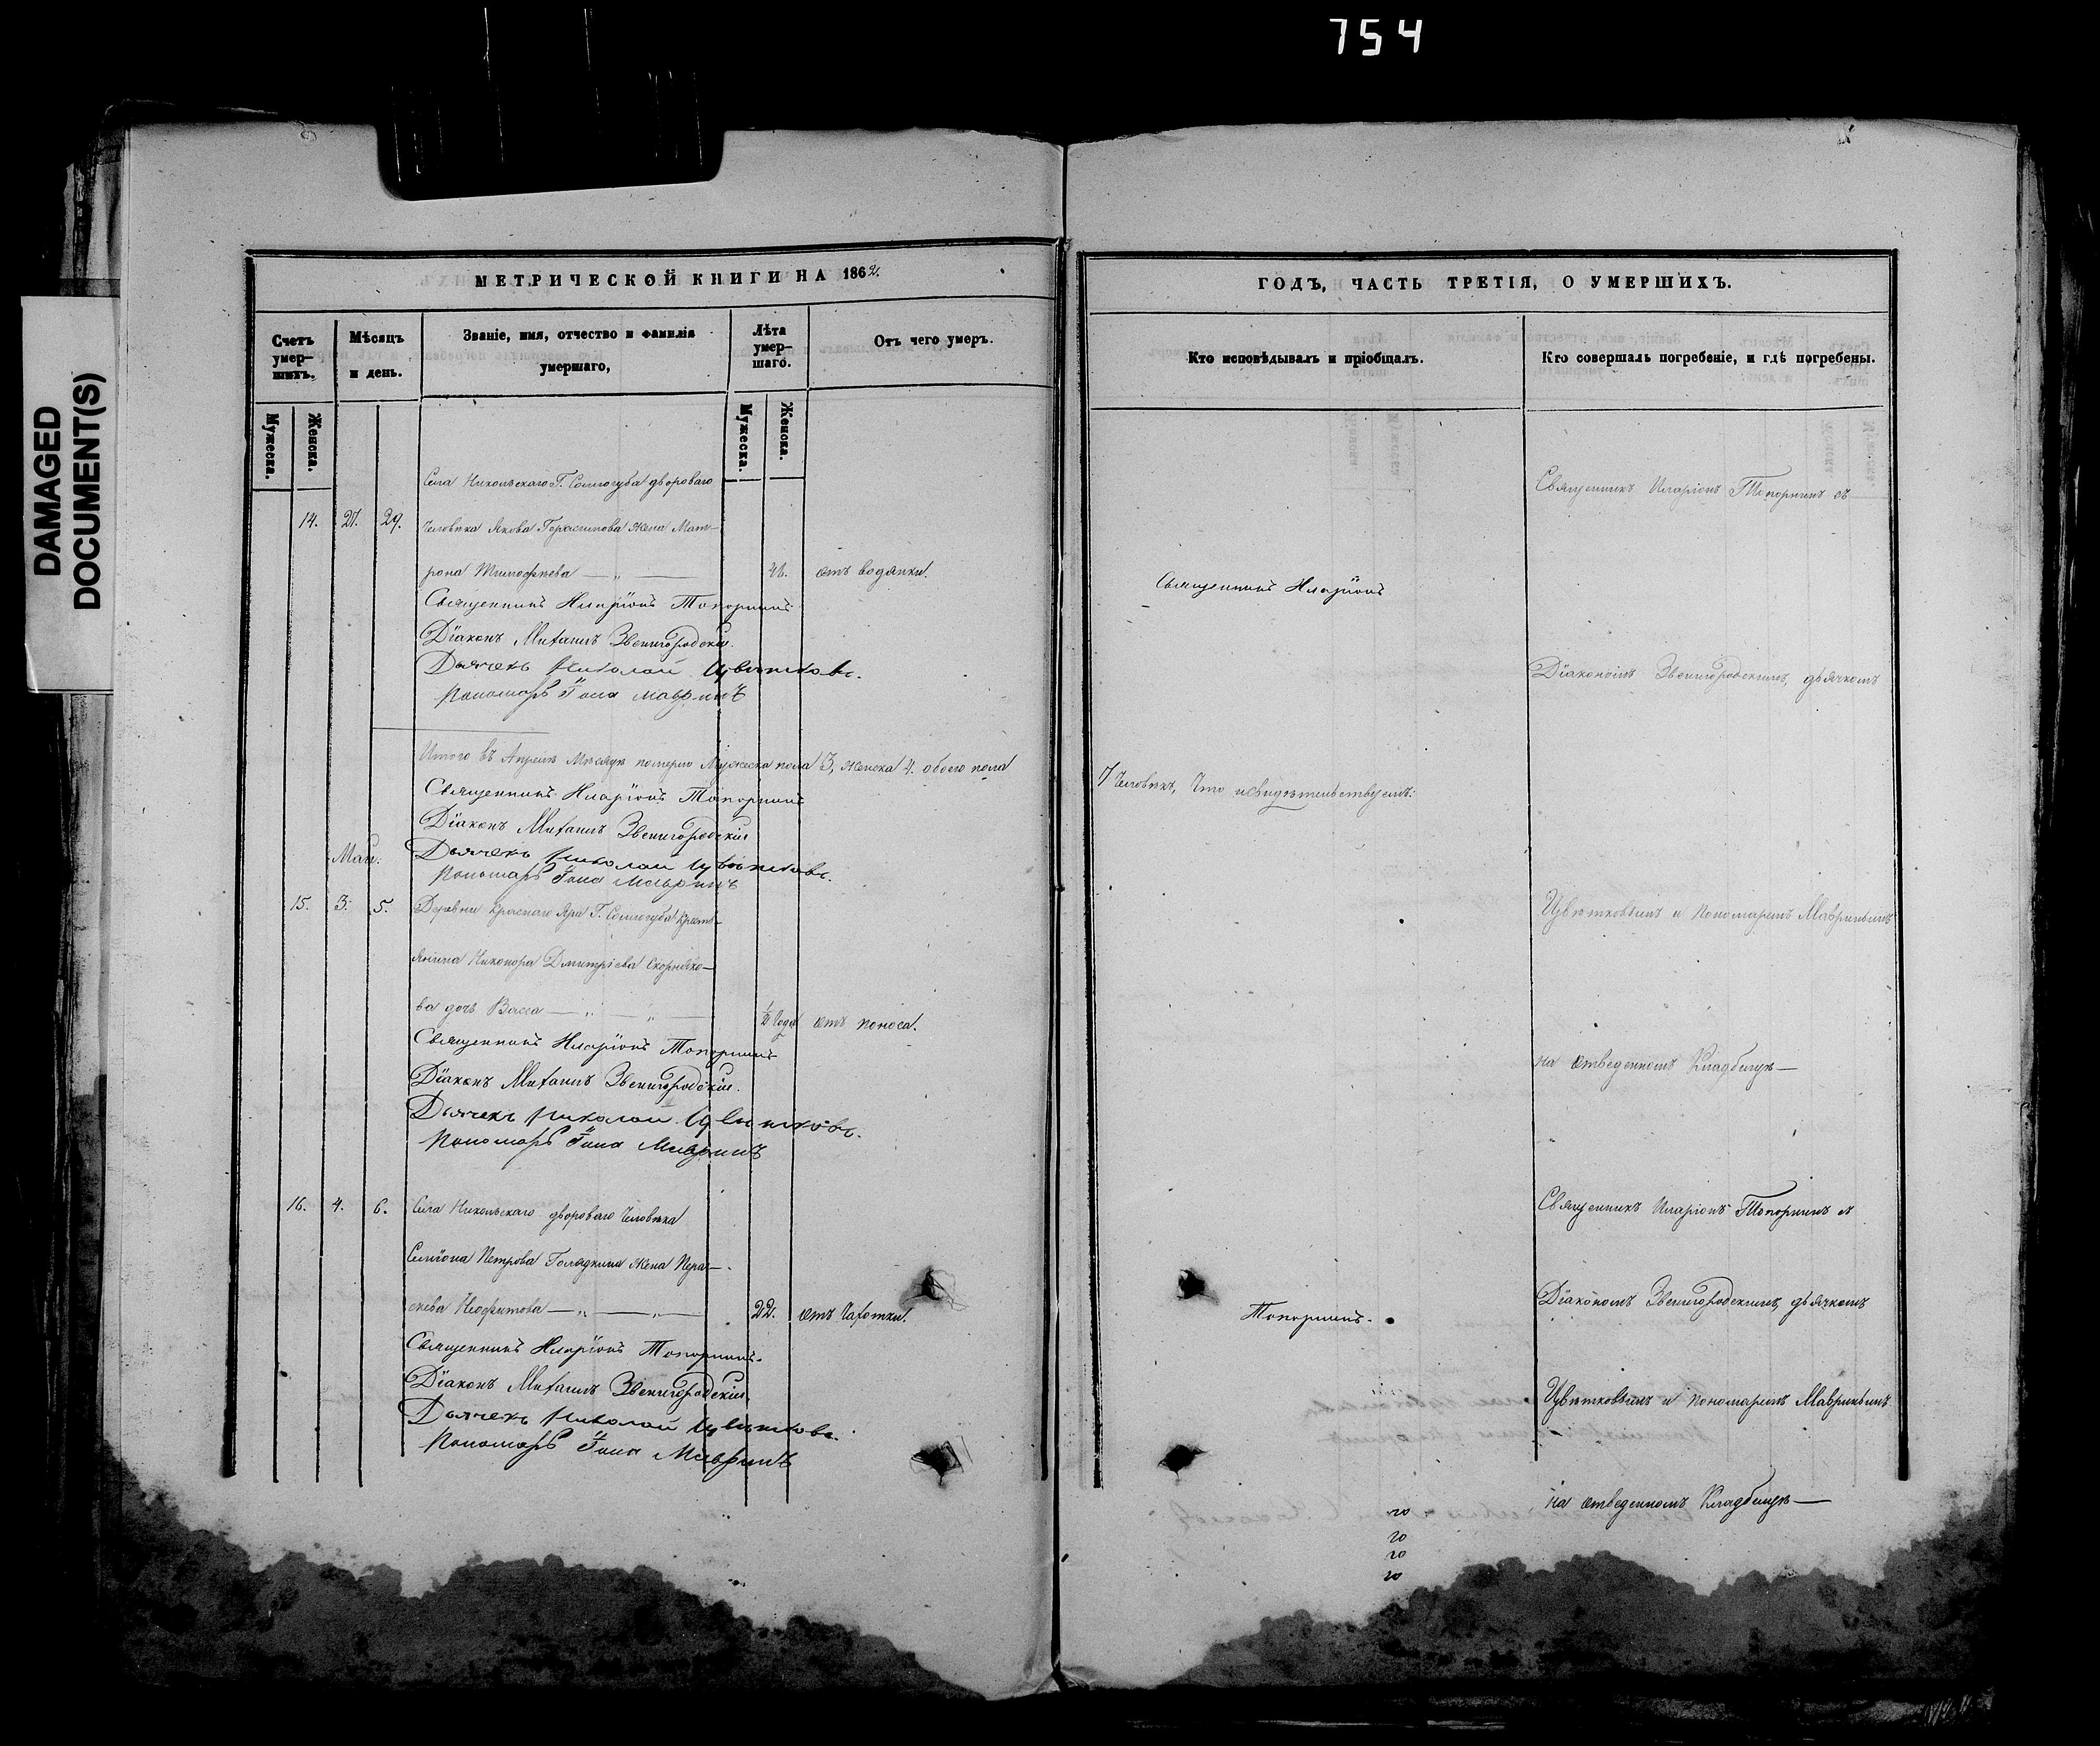 754
DAMAGED
DOCUMENT(S)
МЕТРИЧЕСКОЙ КНИГИ НА 1862.
Счетъ умер-шихъ.
Мѣсяцъ и день.
Званіе, имя, отчество и фамилія умершаго,
Лѣта умер-шаго.
Отъ чего умеръ.
Мужеска.
Женска.
Мужеска.
Женска.
Села Никольскаго Г. Соллогуба двороваго
14. 27. 29. Человѣка Якова Герасимова жена Мат-
рона Тимофѣева — „ — 46. отъ водянки.
Священникъ Иларіонъ Топорнинъ
Діаконъ Михаилъ Звенигородскій.
Дьячекъ Николай Цвѣтковъ.
Пономарь Іона Мавринъ
Итого въ Апрѣлѣ Мѣсяцѣ померло Мужеска пола 3, женска 4. обоего пола
Священникъ Иларіонъ Топорнинъ
Діаконъ Михаилъ Звенигородскій
Май.
Дьячекъ Николай Цвѣтковъ.
Пономарь Іона Мавринъ
15. 3. 5. Деревни Краснаго Яра Г. Соллогуба Кресть-
янина Никонора Дмитріева Скорняко-
ва дочь Васса — „ — „ — ½ Года отъ поноса.
Священникъ Иларіонъ Топорнинъ
Діаконъ Михаилъ Звенигородскій.
Дьячекъ Николай Цвѣтковъ.
Пономарь Іона Мавринъ
16. 4. 6. Села Никольскаго двороваго Человѣка
Симіона Петрова Голядкина жена Пера-
скева Неофитова — „ — „ — 22. отъ Чахотки.
Священникъ Иларіонъ Топорнинъ.
Діаконъ Михаилъ Звенигородскій
Дьячекъ Николай Цвѣтковъ.
Пономарь Іона Мавринъ
ГОДЪ, ЧАСТЬ ТРЕТІЯ, О УМЕРШИХЪ.
Кто исповѣдывалъ и пріобщалъ.
Кто совершалъ погребеніе, и гдѣ погребены.
Священникъ Иларіонъ Топорнинъ съ
Священникъ Иларіонъ
Діакономъ Звенигородскимъ, дьячкомъ
7 Человѣкъ, Что и свидѣтельствуемъ:
Цвѣтковымъ и Пономаремъ Мавринымъ
на отведенномъ Кладбищѣ —
Священникъ Иларіонъ Топорнинъ съ
Діакономъ Звенигородскимъ, дьячкомъ
Топорнинъ.
Цвѣтковымъ и Пономаремъ Мавринымъ
на отведенномъ Кладбищѣ —